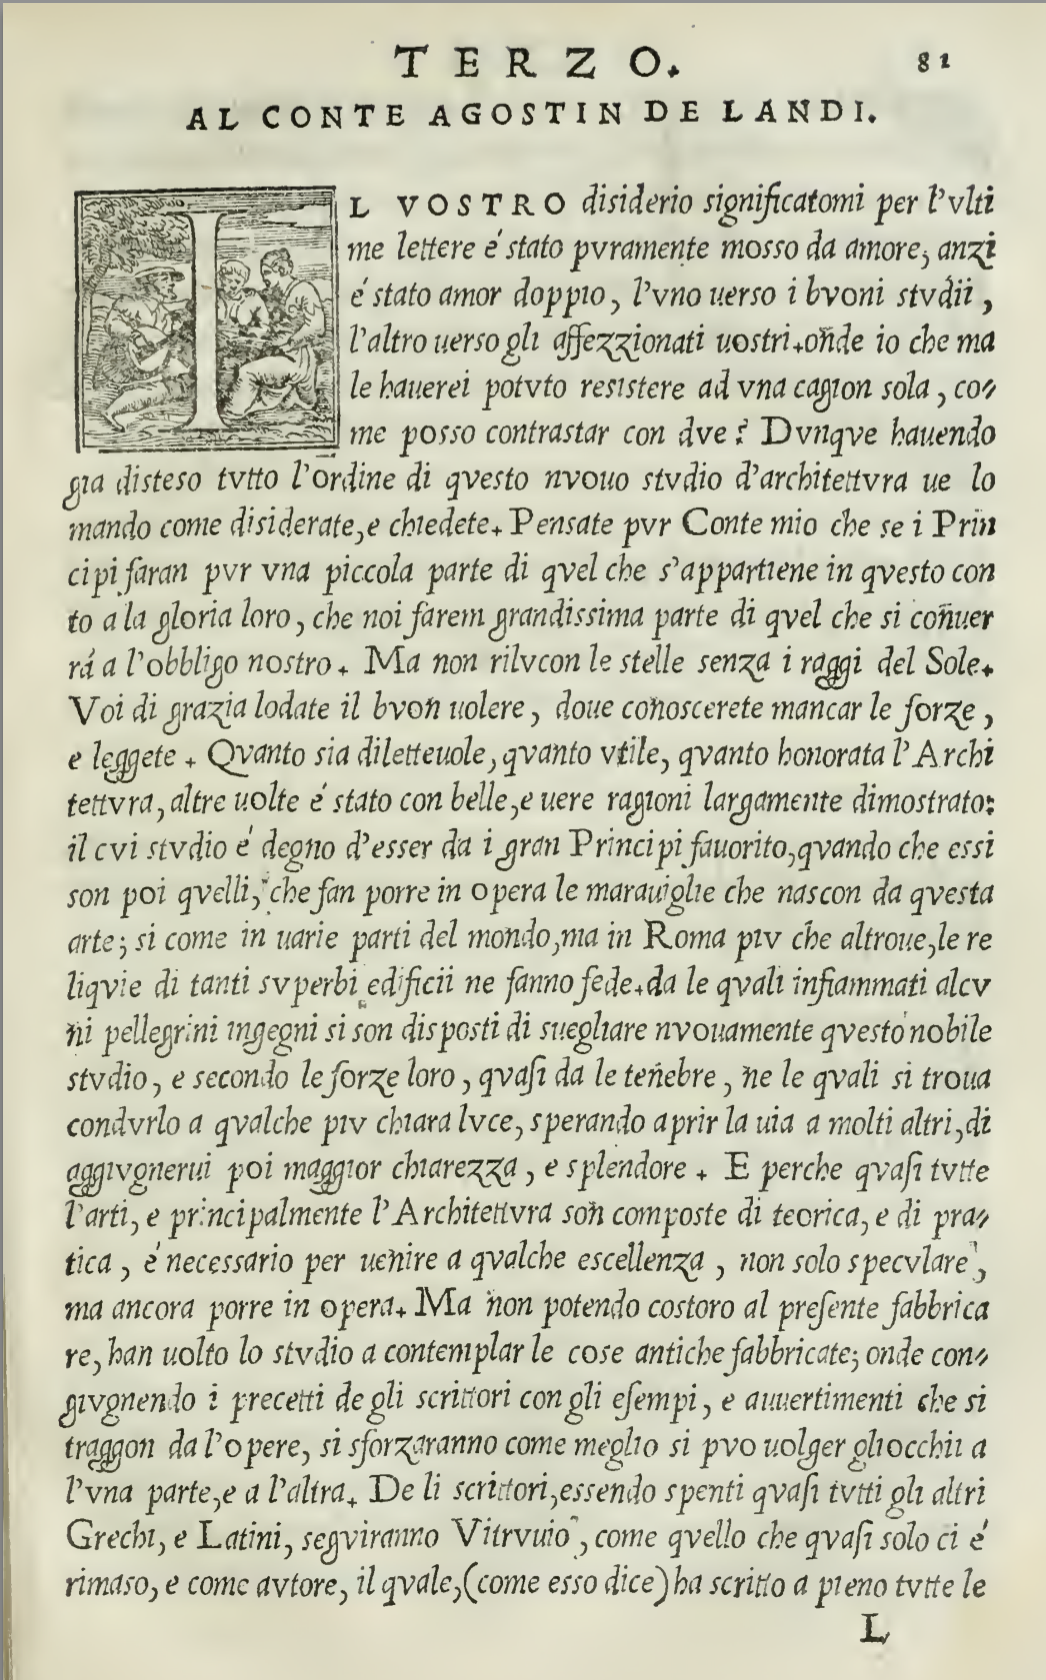 TERZO. 81
AL CONTE AGOSTIN DE LANDI.
IL VOSTRO disiderio significatomi per l'vlti
me lettere é stato pvramente mosso da amore; anzi
é stato amor doppio, l'vno uerso i bvoni stvdii,
l'altro uerso gli affezzionati uostri. onde io che ma
le hauerei potvto resistere ad vna cagion sola, co-
me posso contrastar con dve? Dvnqve hauendo
gia disteso tvtto l'ordine di qvesto nvouo stvdio d'architettvra ue lo
mando come disiderate, e chiedete. Pensate pvr Conte mio che se i Prin
cipi faran pvr vna piccola parte di qvel che s'appartiene in qvesto con
to a la gloria loro, che noi farem grandissima parte di qvel che si conuer
rá a l'obbligo nostro. Ma non rilvcon le stelle senza i raggi del Sole.
Voi di grazia lodate il bvon uolere, doue conoscerete mancar le forze,
e leggete. Qvanto sia diletteuole, qvanto vtile, qvanto honorata l'Archi
tettvra, altre uolte é stato con belle, e uere ragioni largamente dimostrato:
il cvi stvdio é degno d'esser da i gran Principi fauorito, qvando che essi
son poi qvelli, che fan porre in opera le marauiglie che nascon da qvesta
arte; si come in uarie parti del mondo, ma in Roma piv che altroue, le re
liqvie di tanti svperbi edificii ne fanno fede. da le qvali infiammati alcv
ni pellegrini ingegni si son disposti di suegliare nvouamente qvesto nobile
stvdio, e secondo le forze loro, qvaſi da le tenebre, ne le qvali si troua
condvrlo a qvalche piv chiara lvce, sperando aprir la uia a molti altri, di
aggivgnerui poi maggior chiarezza, e splendore. E perche qvaſi tvtte
l'arti, e principalmente l'Architettvra son composte di teorica, e di pra-
tica, é necessario per uenire a qvalche escellenza, non solo specvlare,
ma ancora porre in opera. Ma non potendo costoro al preſente fabbrica
re, han uolto lo stvdio a contemplar le cose antiche fabbricate; onde con-
givgnendo i precetti de gli scrittori con gli eſempi, e auuertimenti che si
traggon da l'opere, si sforzaranno come meglio si pvo uolger gliocchii a
l'vna parte, e a l'altra. De li scrittori, essendo spenti qvaſi tvtti gli altri
Grechi, e Latini, segviranno Vitrvuio, come qvello che qvaſi solo ci é
rimaso, e come avtore, il qvale, (come esso dice) ha scritto a pieno tvtte le
L